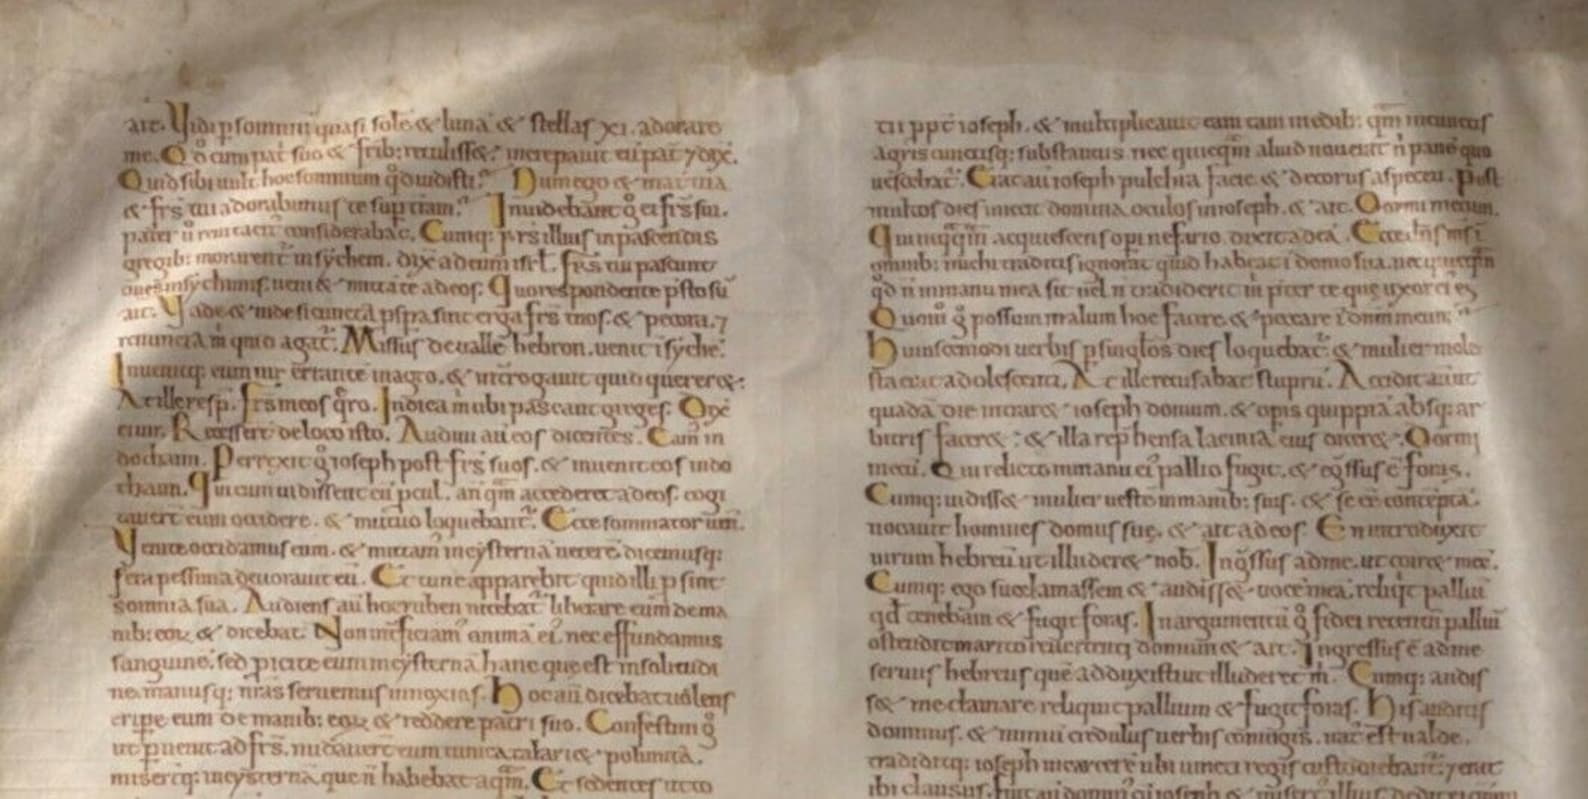 ait. Vidi p somniū quasi solē & lunā & stellas xi. adorare
me. Qđ cum pat̄ suo & frīb; retulisset. increpauit eū pat̄ 7 dix̄.
Quid sibi uult hoc somnium qđ uidisti. Dum ego & mater tua
& frs̄ tui adorabimus te sup terram. Inuidebant g̊ ei frs̄ sui.
pater ū rem tacit̄ considerabat. Cumq; frs̄ illius in pascendis
gregib; morarent̄ in sychem. dix̄ ad eum isrl̄. frs̄ tui pascunt
oues in sychimis. ueni & mittā te ad eos. Quo respondente p̄sto sū
ait. Vade & uide si cuncta pspa sint erga frs̄ tuos. & pecora. 7
renuncia m̄ quid agat̄. Missus de ualle hebron. uenit ī sychē.
Inuenitq; eum uir errantē in agro. & int̄rogauit quid quereret.
At ille resp̄. frs̄ meos q̄ro. Indica m̄ ubi pascant greges. Dix̄
ei uir. Recesser̄t de loco isto. Audiui aū eos dicentes. Eam̄ in
dothaim. Perrexit g̊ ioseph post frs̄ suos. & inuenit eos in do
thaim. Qui cum uidissent eū pcul. anq̄m accederet ad eos. cogi
tauer̄t eum occidere. & mutuo loquebant̄. Ecce somniator uenit.
Venite occidamus eum. & mittam̄ in cysternā ueterē dicemusq;
fera pessima deuorauit eū. Et tunc apparebit quid illi p sint
somnia sua. Audiens aū hoc ruben nitebat̄ liberare eum de ma
nib; eoꝝ & dicebat. Non int̄ficiam̄ animā ei̾. nec effundamus
sanguinē. sed picite eum in cysternā hanc que est in solitudi
ne. manusq; nr̄as seruemus innoxias. Hoc aū dicebat uolens
eripe eum de manib; eoꝝ & reddere patri suo. Confestim g̊
ut puenit ad frs̄. nudauer̄t eum tunica talari & polimita.
miser̄tq; in cysternā que n̄ habebat aq̄m. Et sedentes ut co
tii ppt̄ ioseph. & multiplicauit tam in edib; q̄m in cunctis
agris cunctaq; substantia. nec quicq̄m aliud nouerat n̄ panē quo
uescebat̄. Erat aū ioseph pulchra facie & decorus aspectu. Post
multos dies iniecit domina oculos in ioseph. & ait. Dormi mecum.
Qui neq̄q̄m acquiescens opi nefario. dixit ad eā. Ecce dn̄s ms̄
omnib; michi traditis ignorat quid habeat ī domo sua. nec quicq̄m
qđ n̄ in manu mea sit uel n̄ tradiderit m̄ pter te que uxor ei̾ es
Quom̊ g̊ possum malum hoc facere & peccare ī dnm̄ meum.
Huiuscemodi uerbis p singlōs dies loquebat̄. & mulier mole
sta erat adolescenti. At ille recusabat stuprū. Accidit aū ut
quadā die intraret ioseph domum. & opis quippiā absq; ar
bitris faceret. & illa rep̄hensa lacinia eius diceret. Dormi
mecū. Qui relicto in manu ei̾ pallio fugit. & eg̊ssus ē foras.
Cumq; uidisset mulier uestē in manib; suis. & se eē contēptā.
uocauit homines domus sue. & ait ad eos. En introduxit
uirum hebreū ut illuderet nob̄. Ing̊ssus ad me. ut coiret mec̄.
Cumq; ego succlamassem & audisset uocē meā. reliq̄t palliū
qđ tenebam & fugit foras. In argumentū g̊ fidei retentū palliū
ostendit marito reuertenti domum & ait. Ingressus ē ad me
seruus hebreus quē adduxisti ut illuderet m̄. Cumq; audis
set me clamare reliquit pallium & fugit foras. His auditis
dominus. & nimiū credulus uerbis coniugis. irat̄ est ualde.
tradiditq; ioseph in carcerē ubi uincti regis custodiebant̄. 7 erat
ibi clausus.